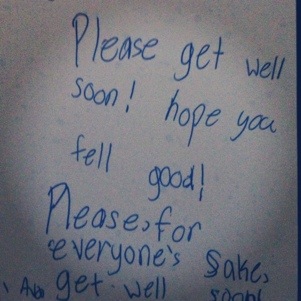 Please get well
soon! hope you
fell good!
Please, for
everyone's sake,
get well soon!